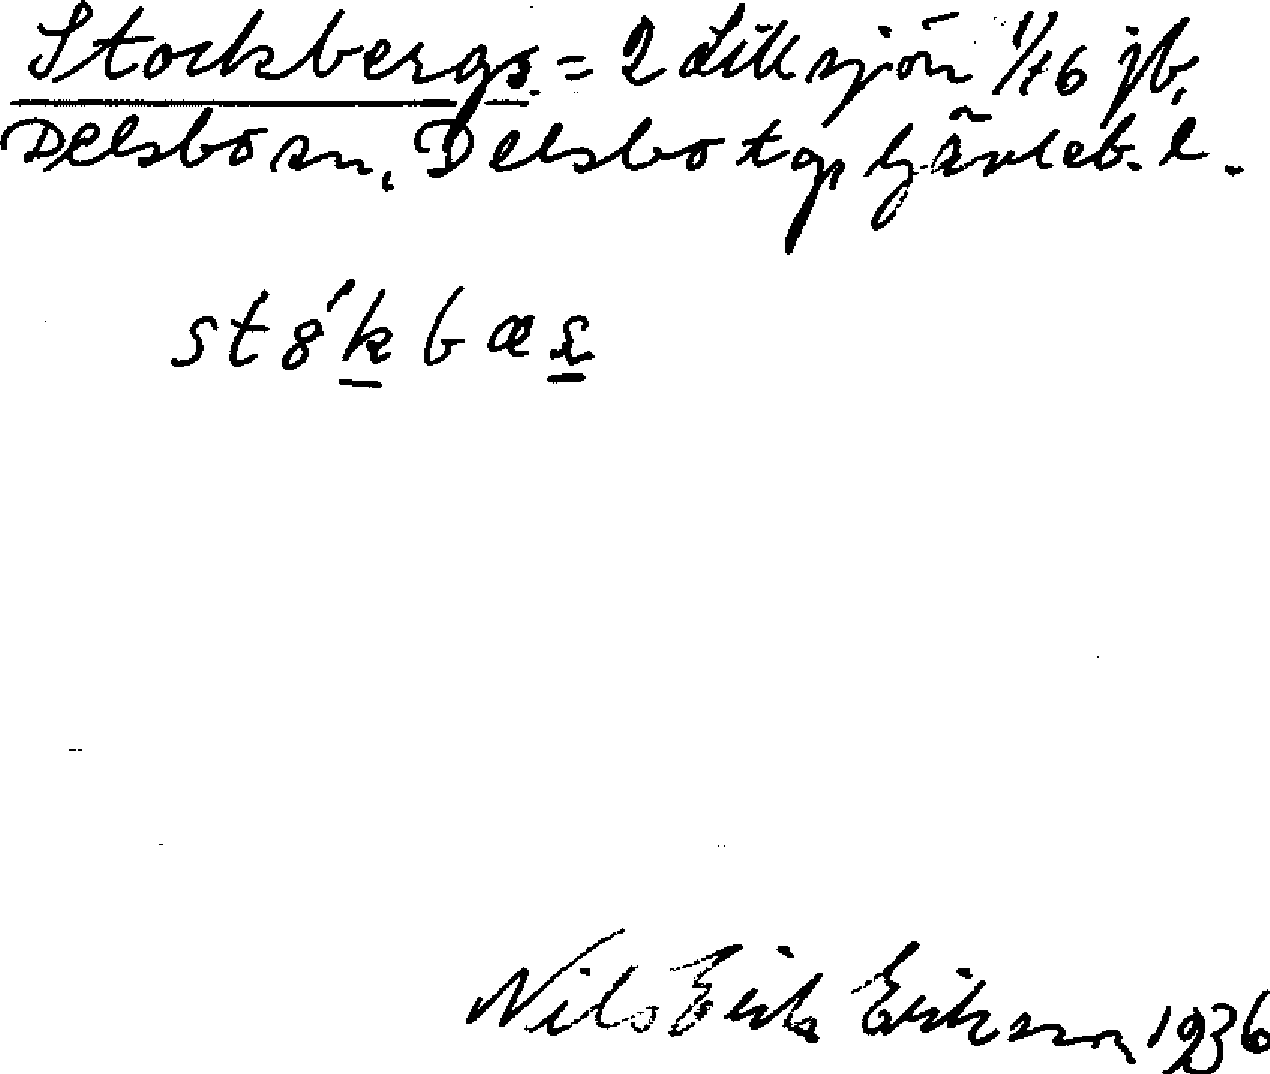 Stockbergs. = 2 Lillsjön 1/16 jb,
Delsbo sn, Delsbo tg, Gävleb. l.
st8́kbæs
Nils Erik Erikson 1936